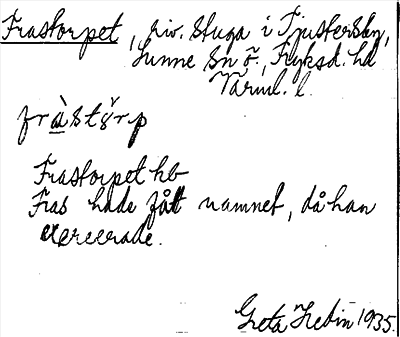 Frastorpet, riv. stuga i Tjustersby,
Sunne sn ö., Fryksd. hd
Värml. l.
fràstŏ́rp
Frastorpet hb
Fras hade fått namnet, då han
exercerade.
Greta Hedin 1935.